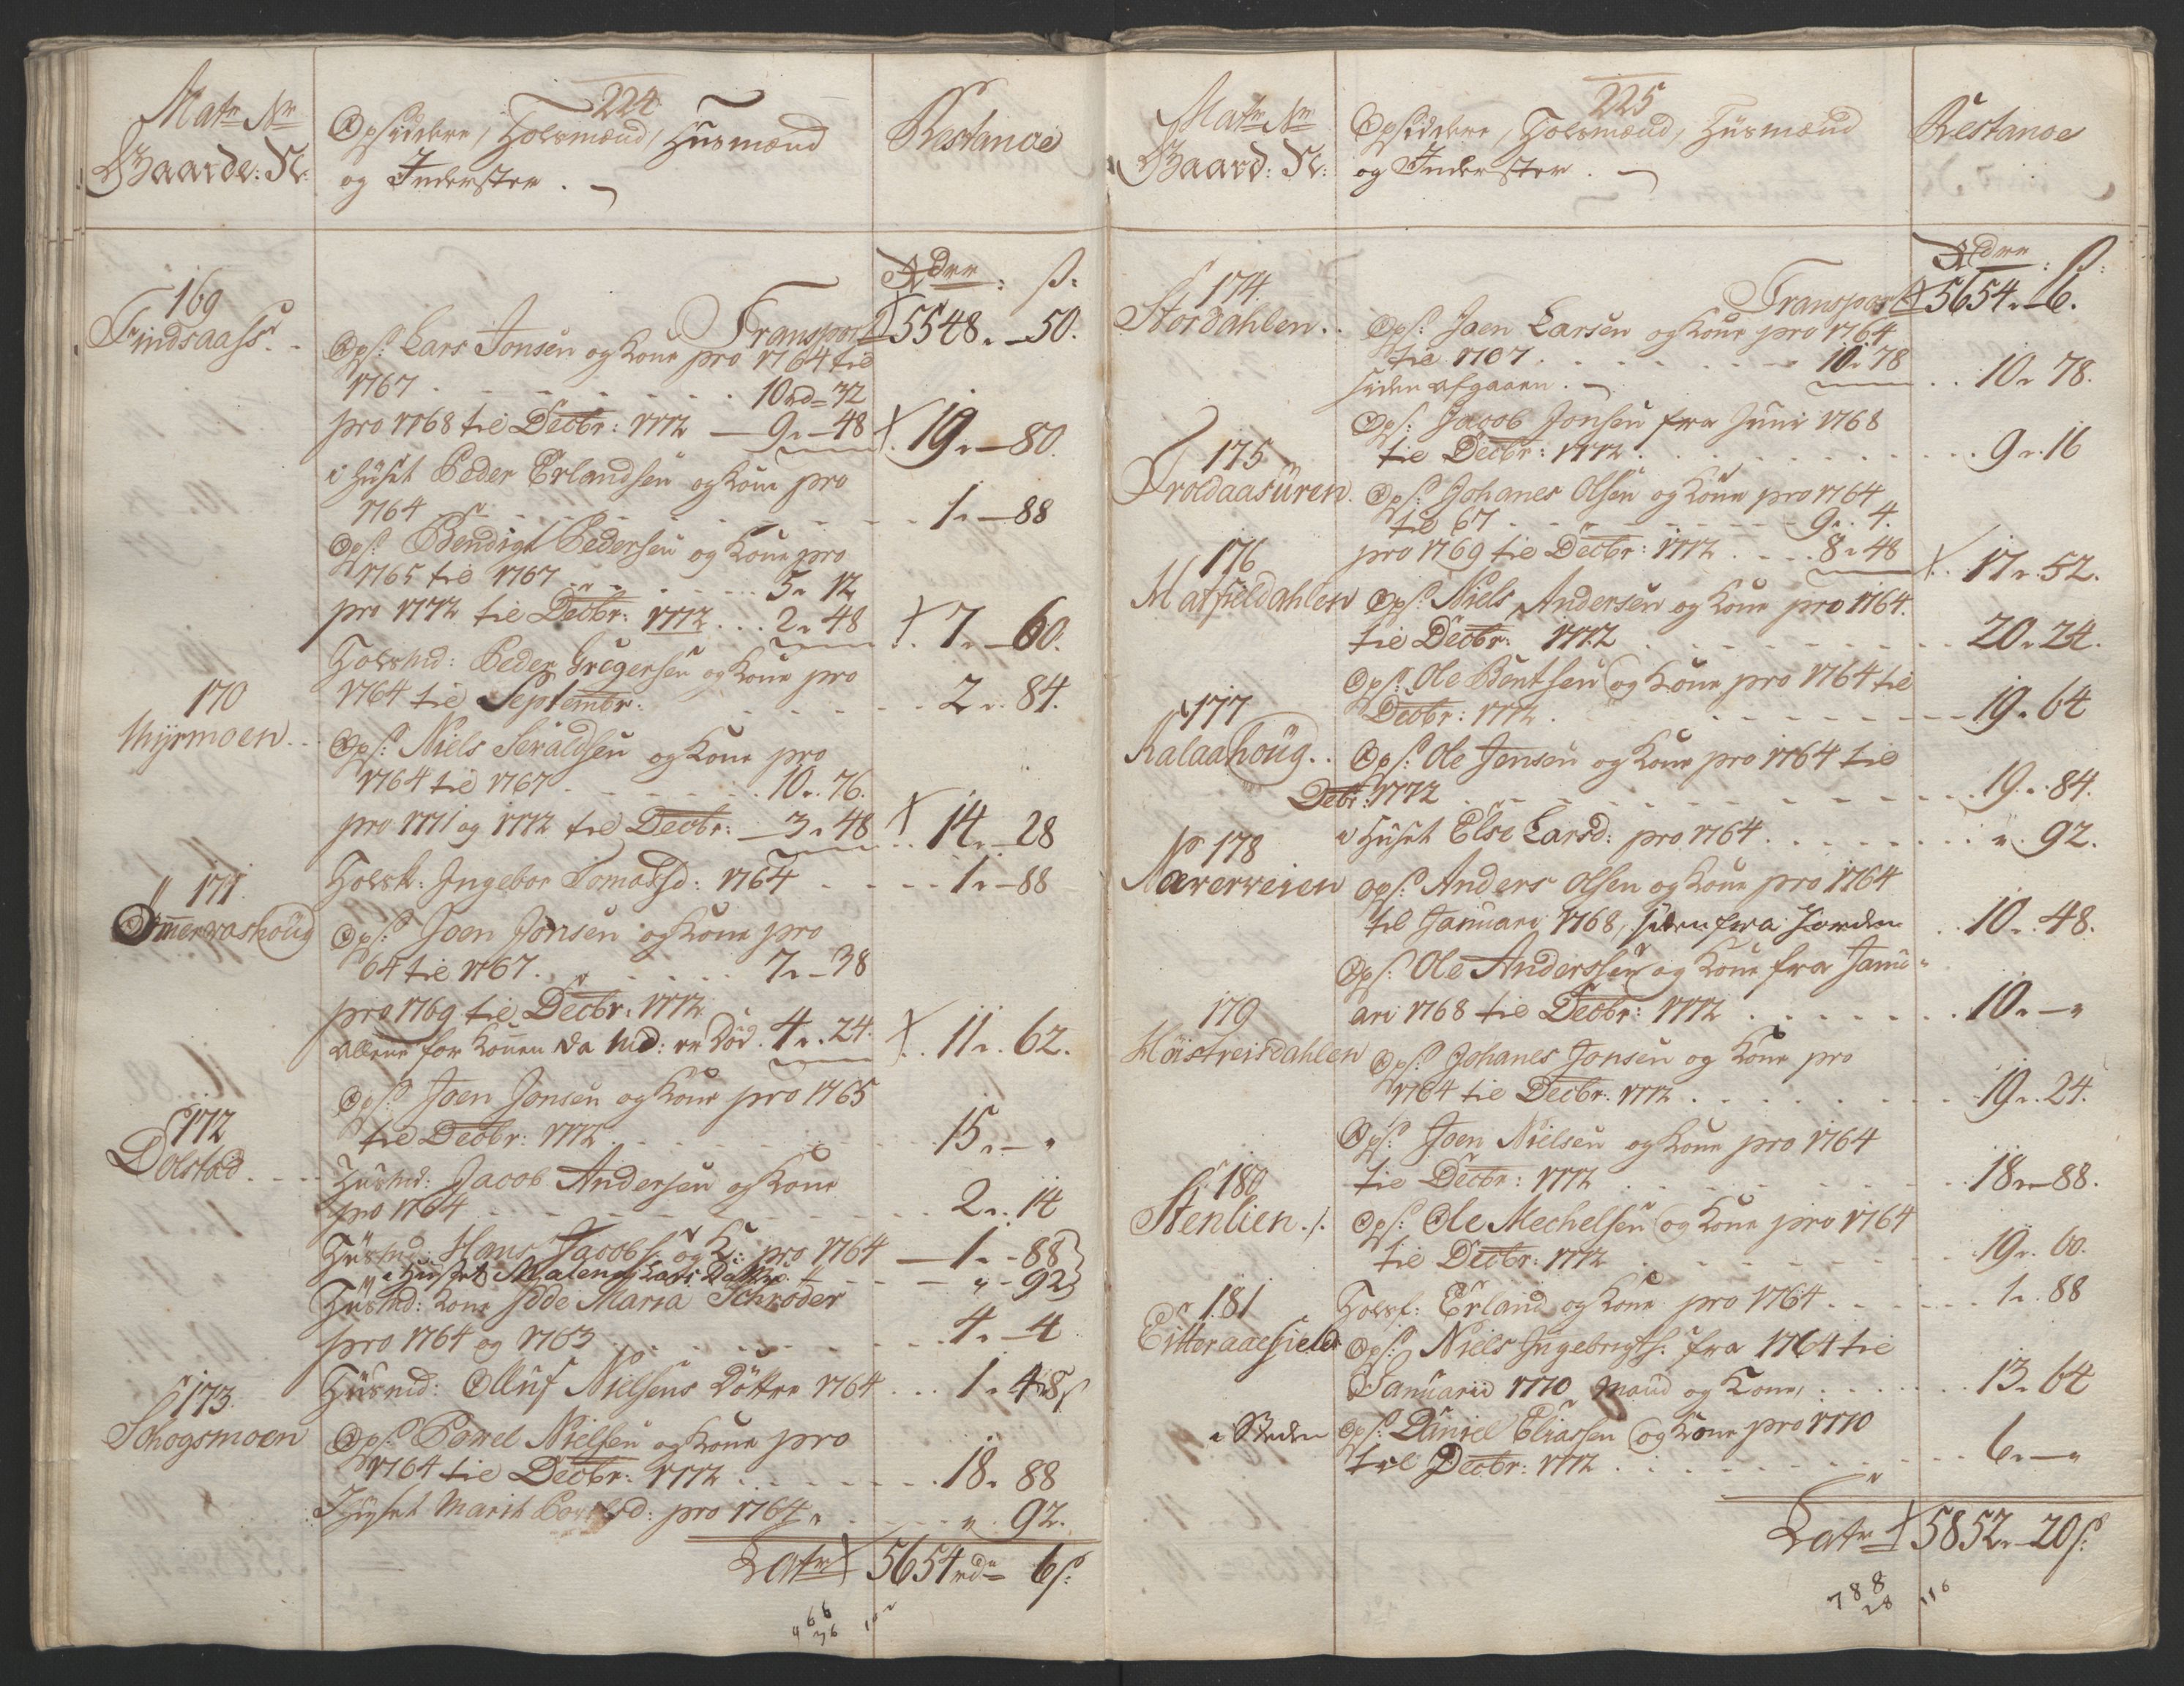 224
Matr Nr
Gaarde: N:
Opsiddere, Folsmænd, Husmænd
og Inderster.
Restance
Rdr: ß:
Transport 5548. - 50.
169
Findsaass.
Ops: Lars Jonsen og Kone pro 1764 til
1767 . . . 10rd = 32
pro 1768 til Decbr: 1772 — 9. - 48 19. - 80.
i Huset Peder Erlandsen og Kone pro
1764 . . . 1. - 88
Ops: Bendigt Pedersen og Kone pro
1765 til 1767 . . . 5. 12
pro 1772 til Decbr: 1772 . . . 2. 48 7. - 60.
Folsmd: Peder Gregersen og Kone pro
1764 til Septembr: . . . 2. 84.
170
Myrmoen..
Ops: Niels Sevaldsen og Kone pro
1764 til 1767 . . . 10. 76.
pro 1771 og 1772 til Decbr: — 3. 48 14. - 28
Folsk: Ingebor Tomasd: 1764 . . . 1. - 88
171
Ømmervashoug
Ops: Joen Jonsen og Kone pro
64 til 1767. . . . 7. - 38
pro 1769 til Decbr: 1772
allene for Konen da md: er Død. 4. 24. 11. 62.
172
Dolstad
Ops: Joen Jonsen og Kone pro 1765
til Decbr: 1772 . . . 15. - "
Husmd: Jacob Andersen og Kone
pro 1764 . . . 2. 14
Husmd: Hans Jacobs: og K: pro 1764 — 1. - 88
i Huset Malena Lars Datter . . . " - 92
Husmd: Kone Idde Maria Schrøder
pro 1764 og 1765 . . . 4. - 4
Husmd: Olluf Nielsens Døttre 1764 . . . 1. 48
173.
Schogsmoen
Ops: Powel Nielsen og Kone pro
1764 til Decbr: 1772 . . . 18. 88
I Huset Marit Powelsd: pro 1764 . . . ". 92.
Latr 5654rd= 6ß:
225
Matr Nr
Gaard: N:
Opsiddere, Folsmænd, Husmænd
og Inderster.
Restance
Rdr: ß:
Transport 5654. - 6.
174.
Stordahlen..
Ops: Joen Larsen og Kone pro 1764
til 1767 . . . 10. 78
siden afgaaen. 10. 78.
Ops: Jacob Jonsen fra Juni 1768
til Decbr: 1772 . . . 9. 16
175
Troldaasüren.
Ops: Johanes Olsen og Kone pro 1764
til 67 . . . 9. 4.
pro 1769 til Decbr: 1772 . . . 8. 48 17. 52.
176
Matfieldahlen
Ops: Niels Andersen og Kone pro 1764.
til Decbr: 1772 . . . 20. 24.
Ops: Ole Bentsen og Kone pro 1764 til
Decbr: 1772 . . . 19. 64
177
Kalaahoug..
Ops: Ole Jensen og Kone pro 1764 til
Debr: 1772 . . . 19. 84.
i Huset Else Larsd: pro 1764 . . . ". 92.
178
Næverveien
Ops: Anders Olsen og Kone pro 1764
til Januari 1768, siden fra Jorden . . 10. 48.
Ops: Ole Anderssen og Kone fra Janu-
ari 1768 til Decbr: 1772 . . . 10. - "
179
Høistreisdahlen
Ops: Johanes Jonsen og Kone pro
1764 til Decbr: 1772 . . . 19. 24.
Ops: Joen Nielsen og Kone pro 1764
til Decbr: 1772 . . . 18. - 88.
180
Stenlien..
Ops: Ole Mechelsen og Kone pro 1764
til Decbr: 1772 . . . 19. 60.
Folsf: Erland og Kone pro 1764 . . . 1. 88
181
Eitteraaefield
Ops: Niels Ingebrigts: fra 1764 til
Januarii 1770 Mand og Kone, . . . 13. 64
i Steden Ops: Daniel Eliassen og Kone pro 1770
til Decbr: 1772 . . . 6. - "
Latr 5852. - 20ß:
788
28
116